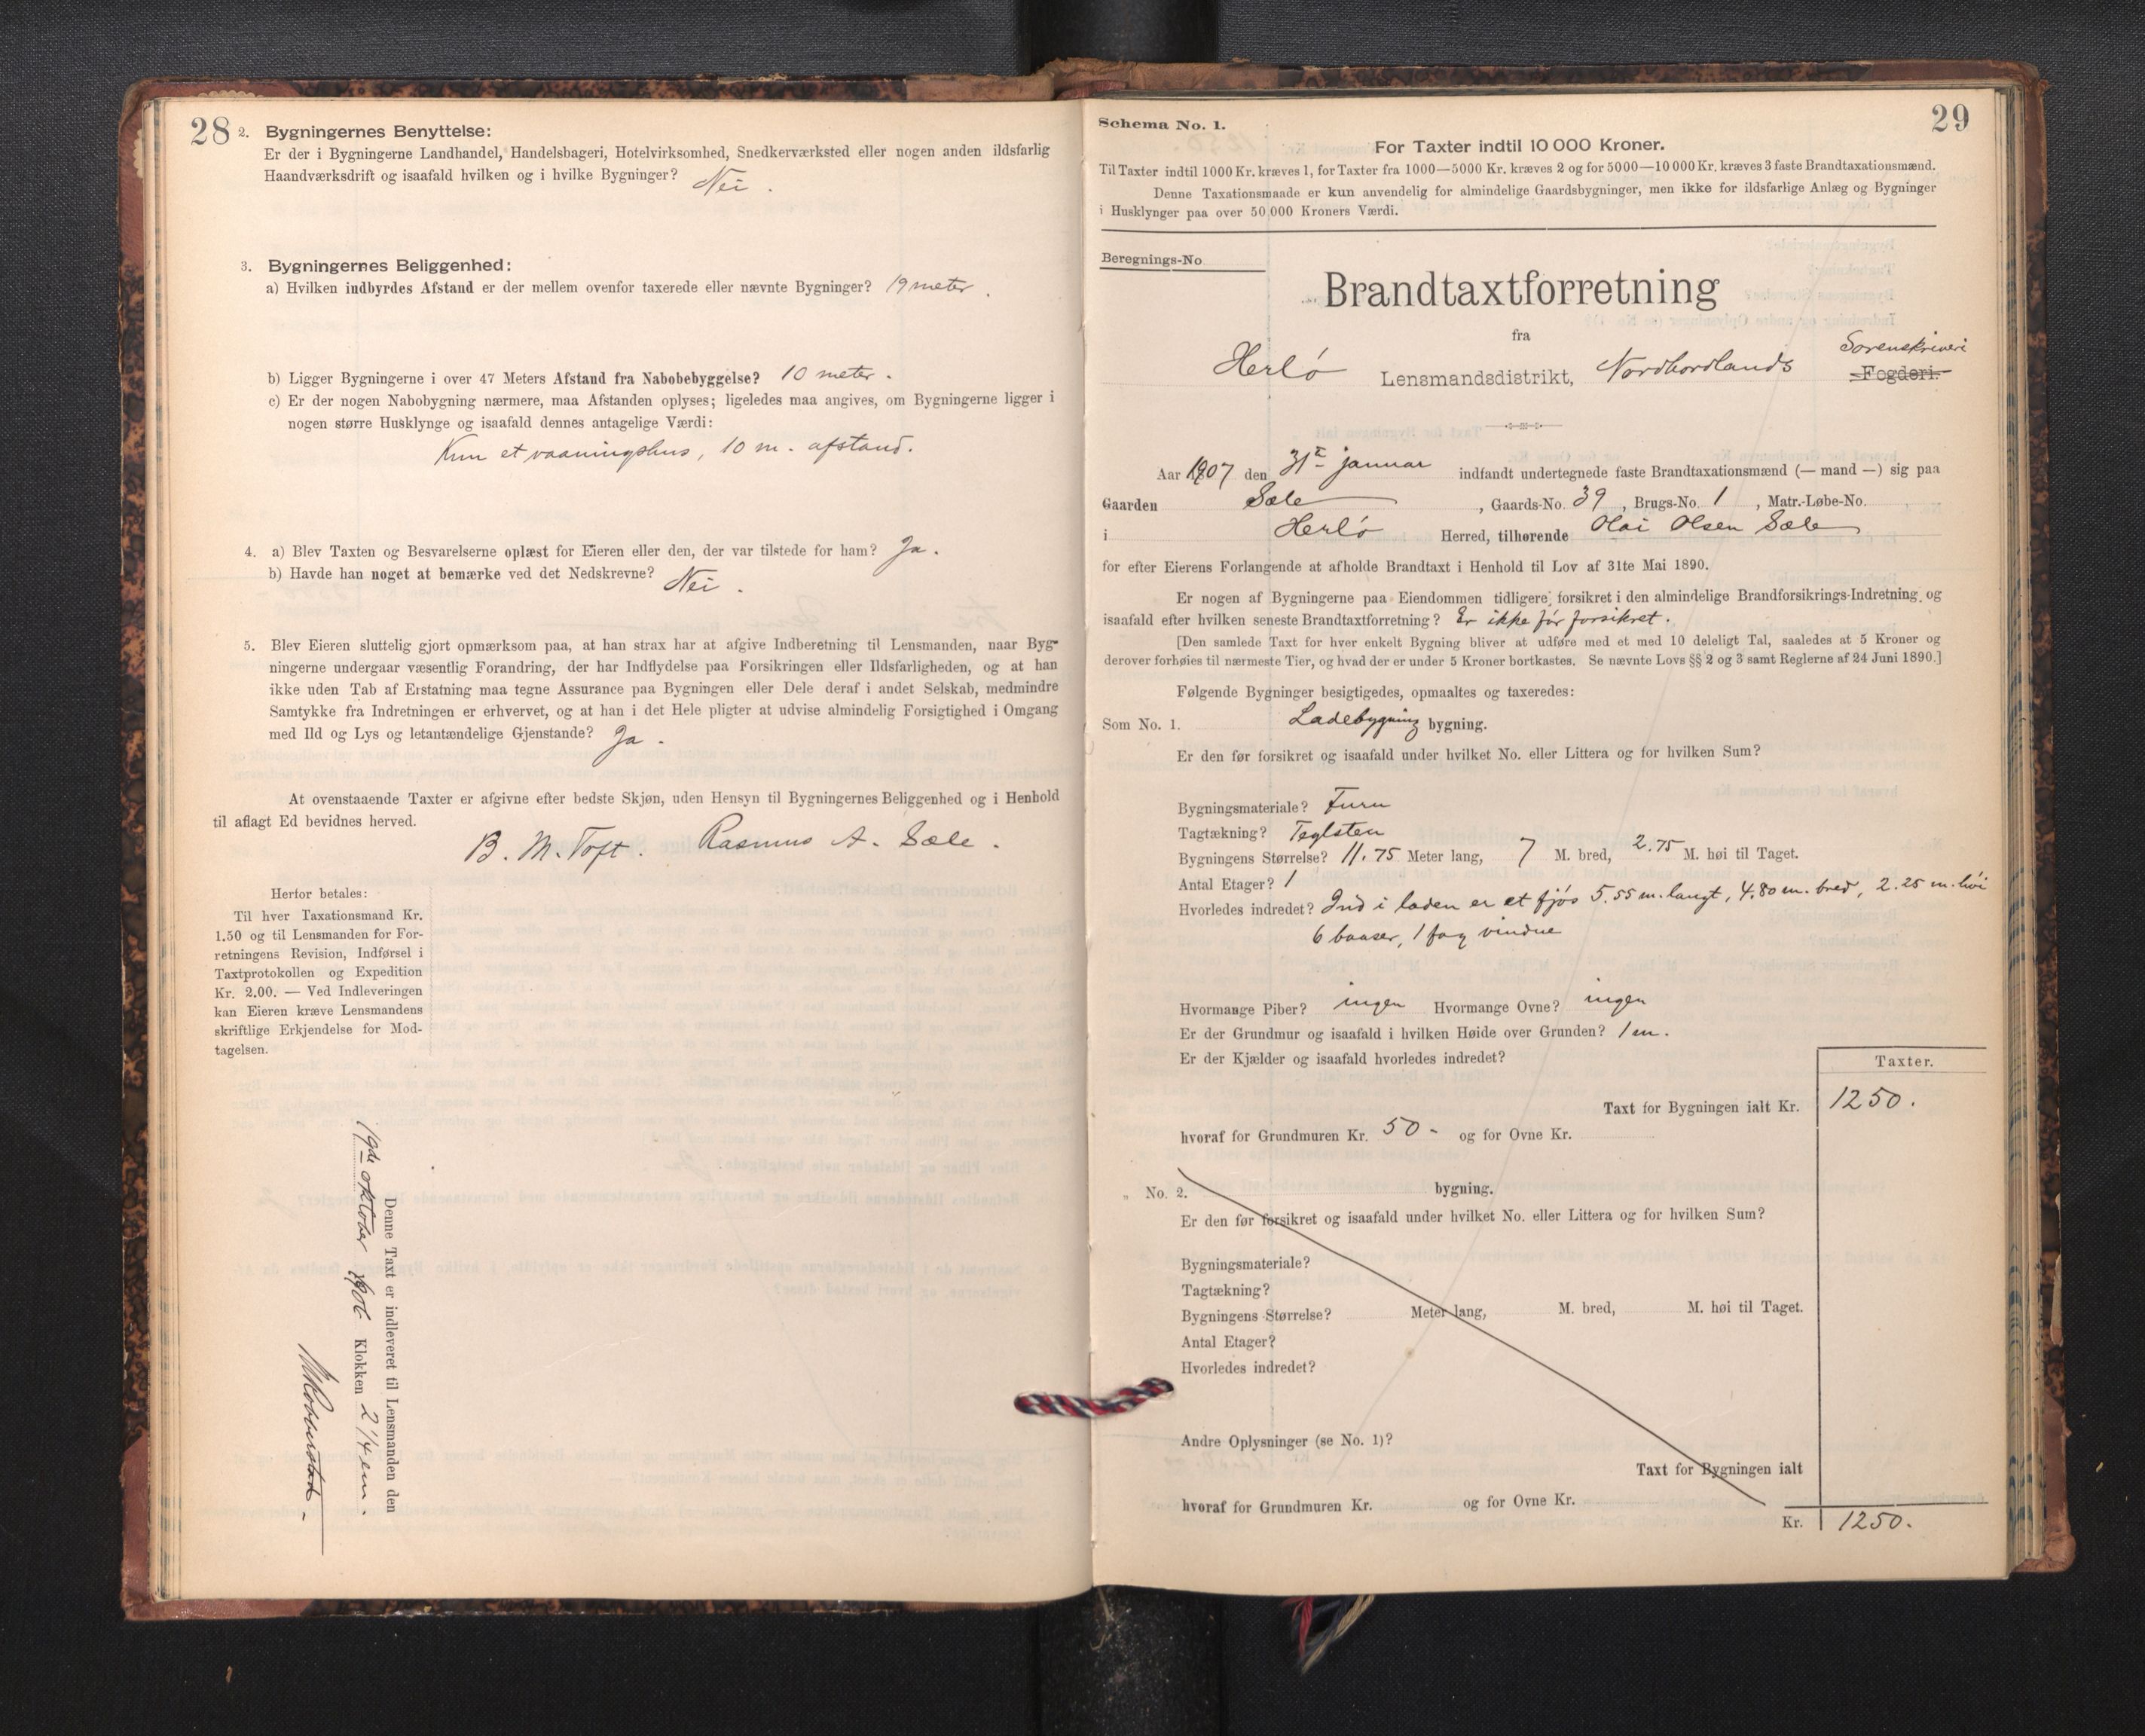 28
2. Bygningernes Benyttelse:
Er der i Bygningerne Landhandel, Handelsbageri, Hotelvirksomhed, Snedkerværksted eller nogen anden ildsfarlig
Haandværksdrift og isaafald hvilken og i hvilke Bygninger? Nei.
3. Bygningernes Beliggenhed:
a) Hvilken indbyrdes Afstand er der mellem ovenfor taxerede eller nævnte Bygninger? 19 meter.
b) Ligger Bygningerne i over 47 Meters Afstand fra Nabobebyggelse? 10 meter.
c) Er der nogen Nabobygning nærmere, maa Afstanden oplyses; ligeledes maa angives, om Bygningerne ligger i
nogen større Husklynge og isaafald dennes antagelige Værdi:
Kun et vaaningshus, 10 m. afstand.
4. a) Blev Taxten og Besvarelserne oplæst for Eieren eller den, der var tilstede for ham? Ja.
b) Havde han noget at bemærke ved det Nedskrevne? Nei.
5. Blev Eieren sluttelig gjort opmærksom paa, at han strax har at afgive Indberetning til Lensmanden, naar Byg-
ningerne undergaar væsentlig Forandring, der har Indflydelse paa Forsikringen eller Ildsfarligheden, og at han
ikke uden Tab af Erstatning maa tegne Assurance paa Bygningen eller Dele deraf i andet Selskab, medmindre
Samtykke fra Indretningen er erhvervet, og at han i det Hele pligter at udvise almindelig Forsigtighed i Omgang
med Ild og Lys og letantændelige Gjenstande? Ja.
At ovenstaaende Taxter er afgivne efter bedste Skjøn, uden Hensyn til Bygningernes Beliggenhed og i Henhold
til aflagt Ed bevidnes herved.
B. M. Toft. Rasmus A. Sæle.
Herfor betales:
Til hver Taxationsmand Kr.
1.50 og til Lensmanden for For-
retningens Revision, Indførsel i
Taxtprotokollen og Expedition
Kr. 2.00. — Ved Indleveringen
kan Eieren kræve Lensmandens
skriftlige Erkjendelse for Mod-
tagelsen.
Denne Taxt er indleveret til Lensmanden den
19de oktober 1906 Klokken 2 1/4 em.
29
Schema No. 1.
For Taxter indtil 10 000 Kroner.
Til Taxter indtil 1000 Kr. kræves 1, for Taxter fra 1000—5000 Kr. kræves 2 og for 5000—10 000 Kr. kræves 3 faste Brandtaxationsmænd.
Denne Taxationsmaade er kun anvendelig for almindelige Gaardsbygninger, men ikke for ildsfarlige Anlæg og Bygninger
i Husklynger paa over 50 000 Kroners Værdi.
Beregnings-No
Brandtaxtforretning
fra
Herlø Lensmandsdistrikt, Nordhordlands Sorenskriveri Fogderi.
Aar 1907 den 31te januar indfandt undertegnede faste Brandtaxationsmænd (— mand —) sig paa
Gaarden Sæle, Gaards-No. 39, Brugs-No. 1, Matr.-Løbe-No.
i Herlø Herred, tilhørende Olai Olsen Sæle
for efter Eierens Forlangende at afholde Brandtaxt i Henhold til Lov af 31te Mai 1890.
Er nogen af Bygningerne paa Eiendommen tidligere forsikret i den almindelige Brandforsikrings-Indretning og
isaafald efter hvilken seneste Brandtaxtforretning? Er ikke før forsikret.
[Den samlede Taxt for hver enkelt Bygning bliver at udføre med et med 10 deleligt Tal, saaledes at 5 Kroner og
derover forhøies til nærmeste Tier, og hvad der er under 5 Kroner bortkastes. Se nævnte Lovs §§ 2 og 3 samt Reglerne af 24 Juni 1890.]
Følgende Bygninger besigtigedes, opmaaltes og taxeredes:
Som No. 1. Ladebygning bygning.
Er den før forsikret og isaafald under hvilket No. eller Littera og for hvilken Sum?
Bygningsmateriale? Furu
Tagtækning? Teglsten
Bygningens Størrelse? 11.75 Meter lang, 7 M. bred, 2.75 M. høi til Taget.
Antal Etager? 1
Hvorledes indredet? Ind i laden er et fjøs 5.55 m. langt, 4.80 m. bred, 2.25 m. høi
6 baaser, 1 fag vindue
Hvormange Piber? ingen Hvormange Ovne? ingen
Er der Grundmur og isaafald i hvilken Høide over Grunden? 1 m.
Er der Kjælder og isaafald hvorledes indredet?
Taxter.
Taxt for Bygningen ialt Kr. 1250.
hvoraf for Grundmuren Kr. 50 - og for Ovne Kr.
„ No. 2. bygning.
Er den før forsikret og isaafald under hvilket No. eller Littera og for hvilken Sum?
Bygningsmateriale?
Tagtækning?
Bygningens Størrelse? Meter lang, M. bred, M. høi til Taget.
Antal Etager?
Hvorledes indredet?
Andre Oplysninger (se No. 1)?
Taxt for Bygningen ialt
hvoraf for Grundmuren Kr. og for Ovne Kr.
Kr. 1250.